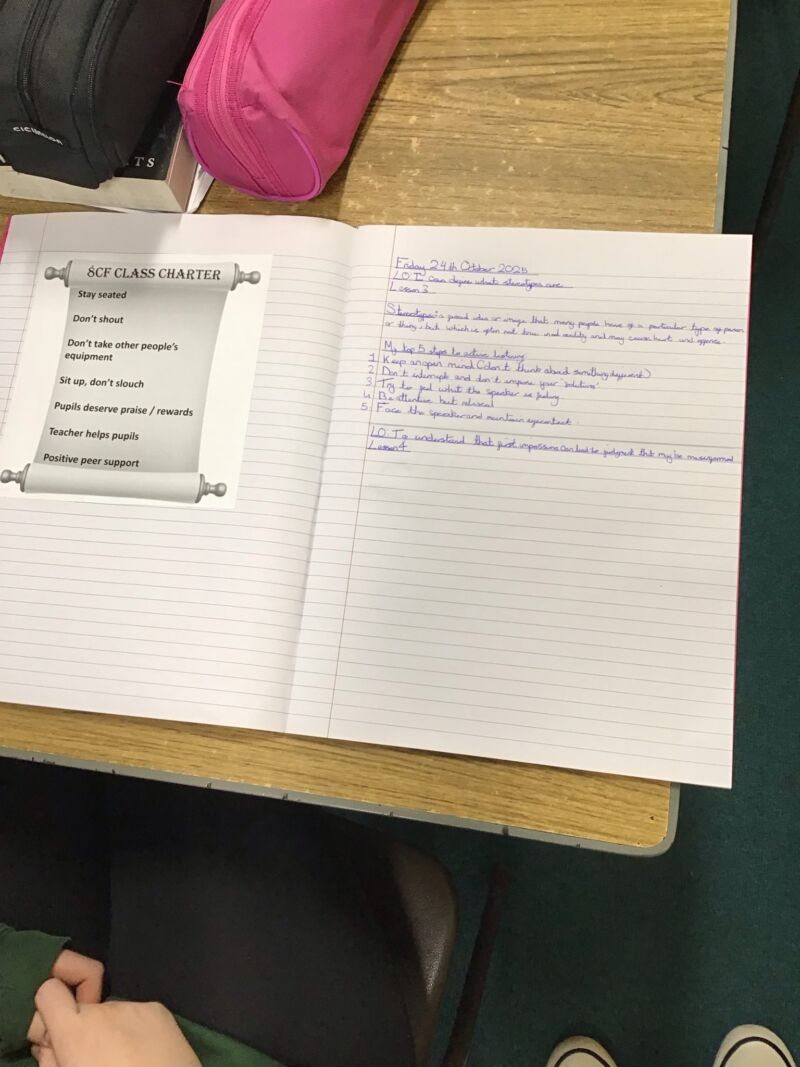 TS
SCF CLASS CHARTER
Stay seated
Don't shout
Don't take other people's
equipment
Sit up, don't slouch
Pupils deserve praise / rewards
Teacher helps pupils
Positive peer support
Friday 24th October 2025
LO: I can define what stereotypes are
Lesson 3
Stereotype: a idea or image that many people have of a particular type of person
or thing, but which is often not true in reality and may cause hurt and offence.
My top 5 steps to active listening
1 Keep an open mind (don't think about something different)
2 Don't interrupt and don't impose your 'solutions'
3 Try to feel what the speaker is feeling
4 Be attentive but relaxed
5 Face the speaker and maintain eyecontact.
LO: To understand that first can lead to judgment that may be
Lesson 4